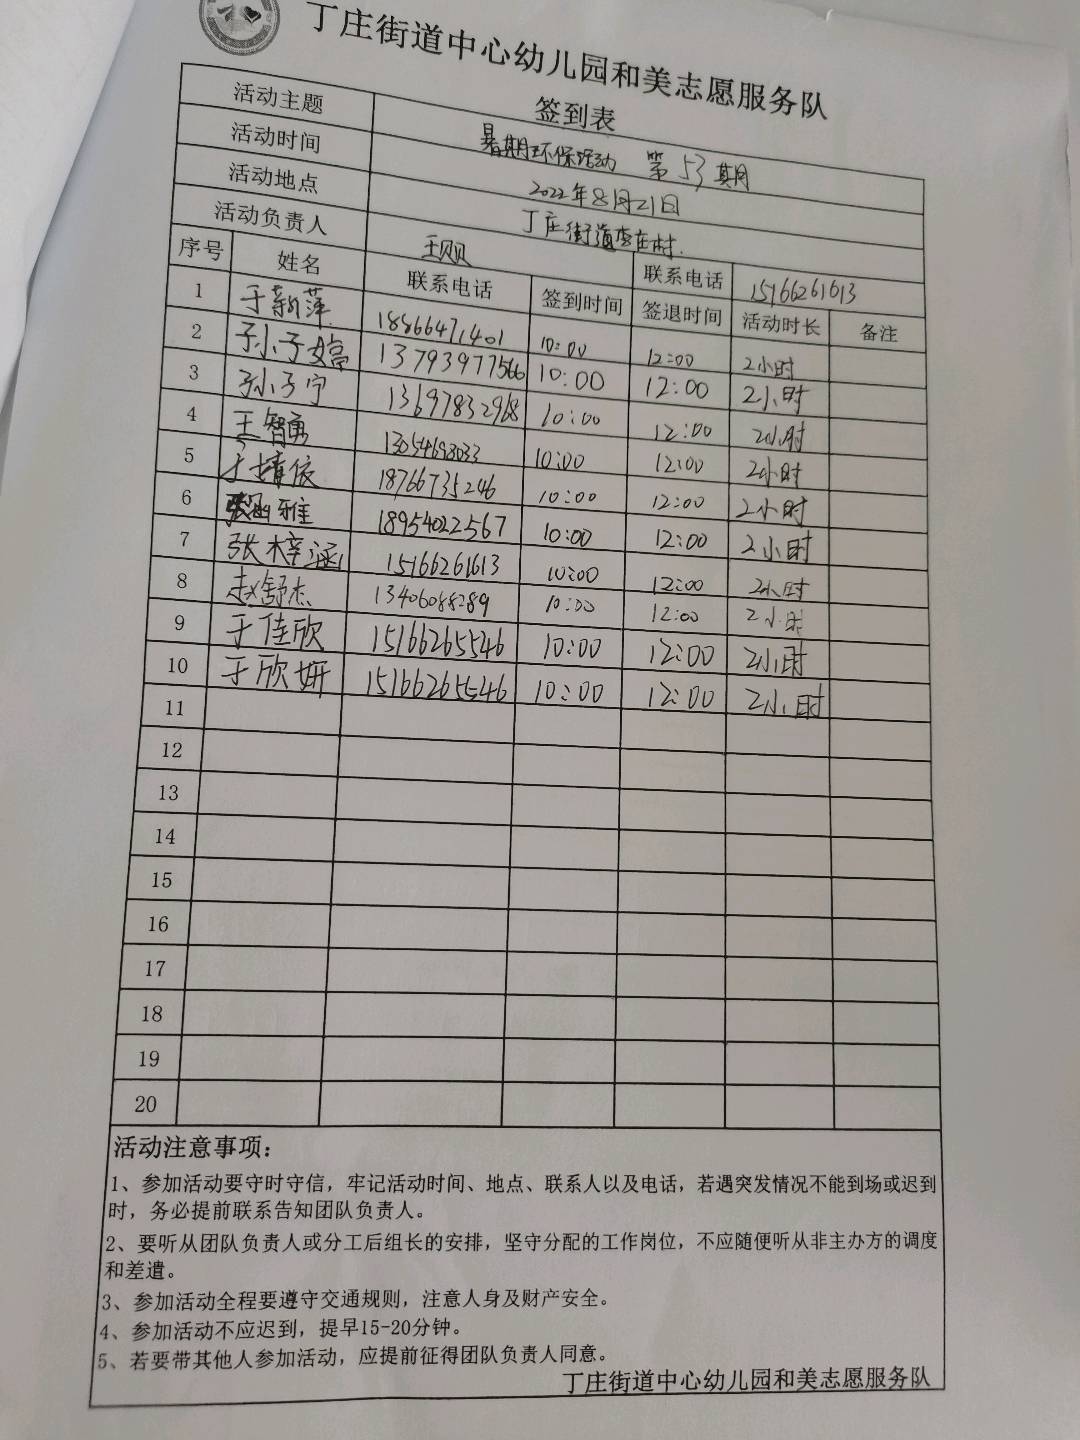 丁庄街道中心幼儿园和美志愿服务队
签到表
活动主题 暑期环保活动 第53期
活动时间 2022年8月21日
活动地点 丁庄街道李庄村.
活动负责人 王贝贝 联系电话 15166261613
序号 姓名 联系电话 签到时间 签退时间 活动时长 备注
1 于新萍 18866471401 10:00 12:00 2小时
2 孙子婷 13793977566 10:00 12:00 2小时
3 孙子宁 13697832968 10:00 12:00 2小时
4 王智勇 13054698033 10:00 12:00 2小时
5 于婧依 18766735246 10:00 12:00 2小时
6 雅 18954022567 10:00 12:00 2小时
7 张梓涵 15166261613 10:00 12:00 2小时
8 赵舒杰 13406088289 10:00 12:00 2小时
9 于佳欣 15166265546 10:00 12:00 2小时
10 于欣妍 15166265546 10:00 12:00 2小时
11
12
13
14
15
16
17
18
19
20
活动注意事项：
1、参加活动要守时守信，牢记活动时间、地点、联系人以及电话，若遇突发情况不能到场或迟到
时，务必提前联系告知团队负责人。
2、要听从团队负责人或分工后组长的安排，坚守分配的工作岗位，不应随便听从非主办方的调度
和差遣。
3、参加活动全程要遵守交通规则，注意人身及财产安全。
4、参加活动不应迟到，提早15-20分钟。
5、若要带其他人参加活动，应提前征得团队负责人同意。
丁庄街道中心幼儿园和美志愿服务队